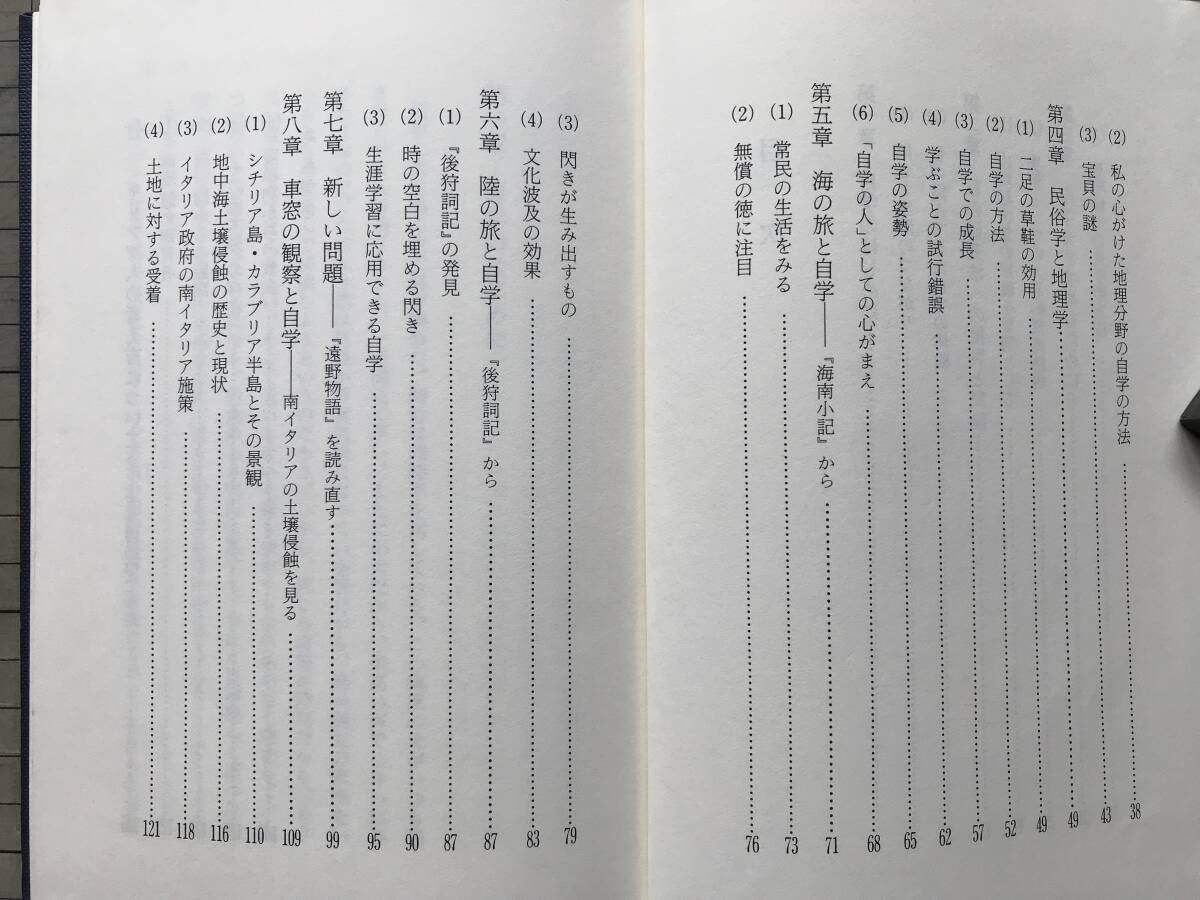 (2) 私の心がけた地理分野の自学の方法……38
(3) 宝貝の謎……43
第四章 民俗学と地理学……49
(1) 二足の草鞋の効用……49
(2) 自学の方法……52
(3) 自学での成長……57
(4) 学ぶことの試行錯誤……62
(5) 自学の姿勢……65
(6) 「自学の人」としての心がまえ……68
第五章 海の旅と自学――『海南小記』から……71
(1) 常民の生活をみる……73
(2) 無償の徳に注目……76
(3) 閃きが生み出すもの……79
(4) 文化波及の効果……83
第六章 陸の旅と自学――『後狩詞記』から……87
(1) 『後狩詞記』の発見……87
(2) 時の空白を埋める閃き……90
(3) 生涯学習に応用できる自学……95
第七章 新しい問題――『遠野物語』を読み直す……99
第八章 車窓の観察と自学――南イタリアの土壌侵蝕を見る……109
(1) シチリア島・カラブリア半島とその景観……110
(2) 地中海土壌侵蝕の歴史と現状……116
(3) イタリア政府の南イタリア施策……118
(4) 土地に対する受着……121